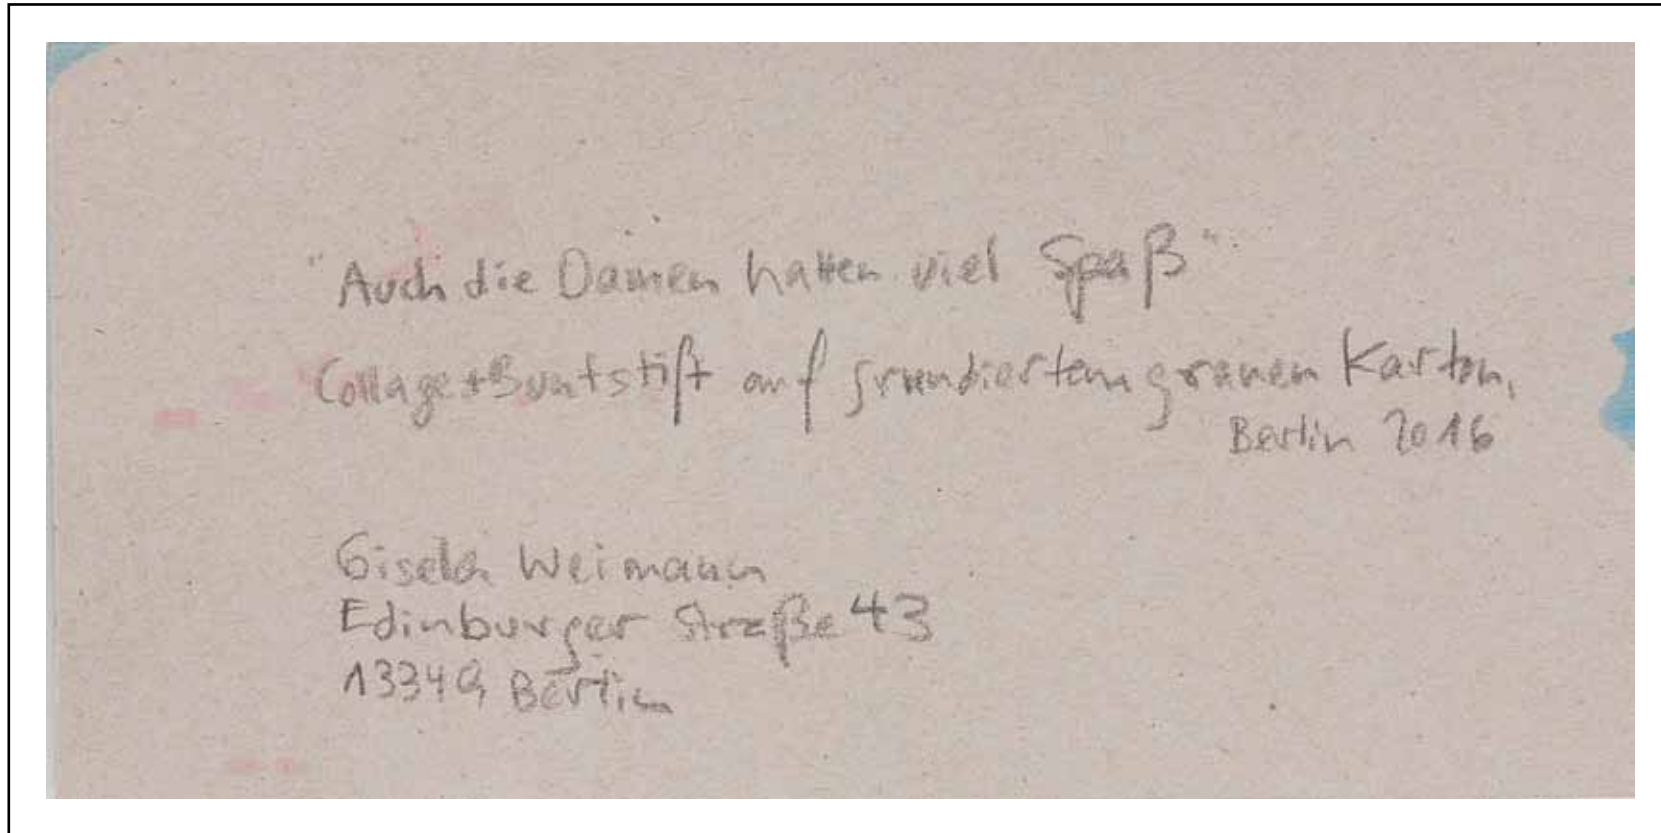 "Auch die Damen hatten viel Spaß"
Collage+Buntstift auf grundiertem grauen Karton,
Berlin 2016
Gisela Weimann
Edinburger Straße 43
13349 Berlin